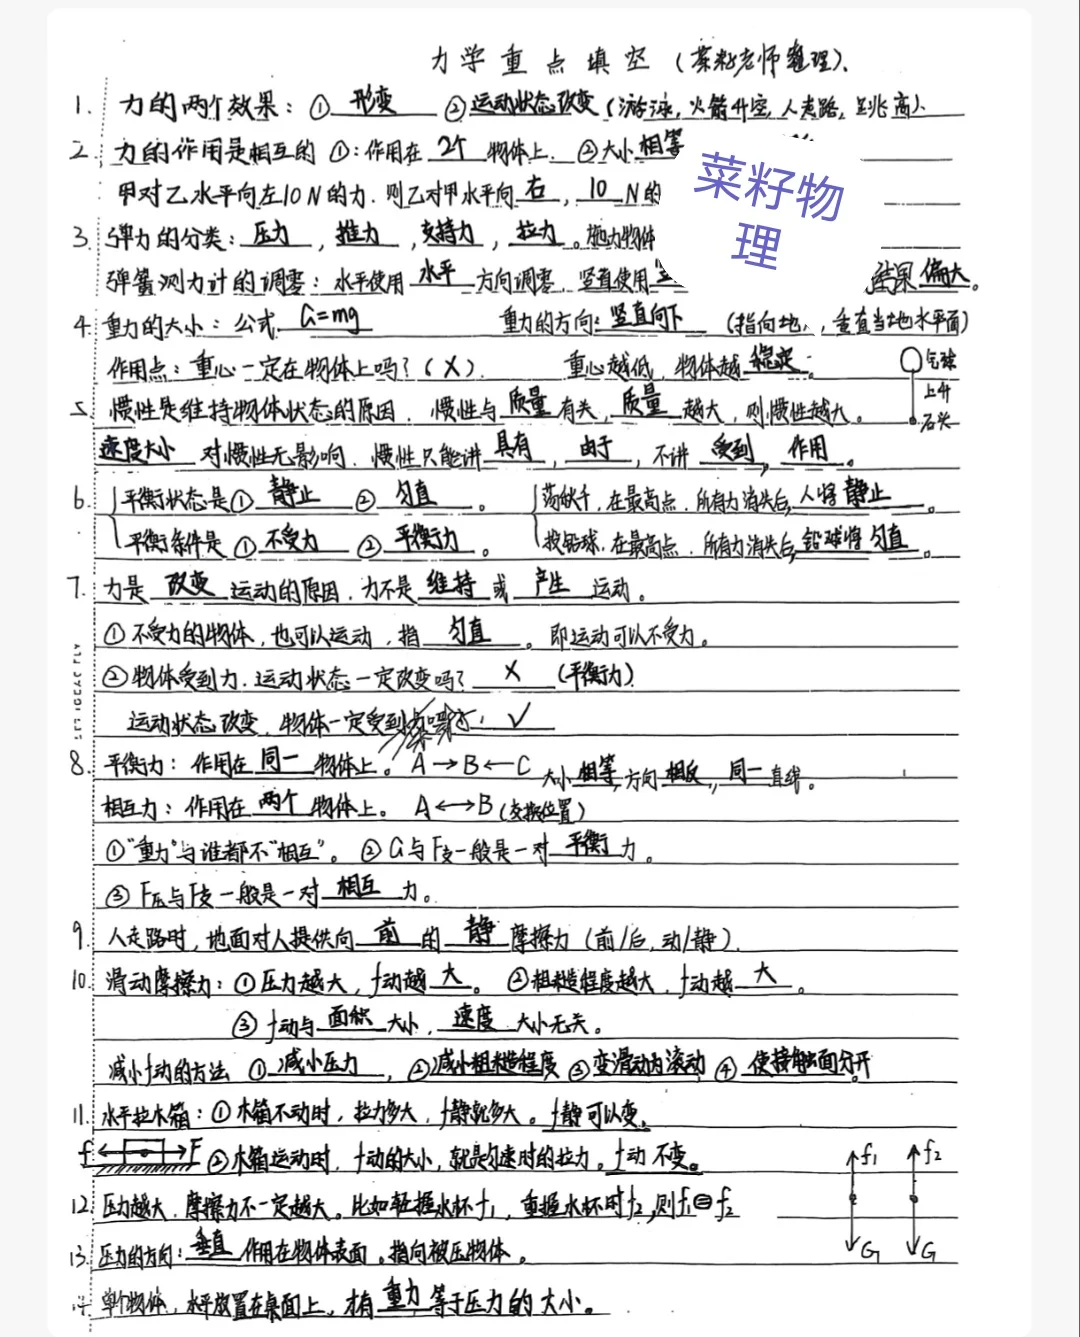 力学重点填空(菜籽老师整理).
1. 力的两个效果: ① 形变 ② 运动状态改变 (游泳, 火箭升空, 人走路, 跳高).
2. 力的作用是相互的 ①: 作用在 2个 物体上. ②大小 相等
甲对乙水平向左10N的力. 则乙对甲水平向 右, 10 N的
3. 弹力的分类: 压力, 推力, 支持力, 拉力。施力物体
弹簧测力计的调零: 水平使用 水平 方向调零, 竖直使用 结果 偏大。
菜籽物
理
4. 重力的大小: 公式 G=mg 重力的方向: 竖直向下 (指向地心, 垂直当地水平面)
作用点: 重心一定在物体上吗? (×). 重心越低, 物体越 稳定.
气球
上升
石头
5. 惯性是维持物体状态的原因. 惯性与 质量 有关, 质量 越大, 则惯性越大。
速度大小 对惯性无影响. 惯性只能讲 具有, 由于, 不讲 受到, 作用。
6. 平衡状态是① 静止 ② 匀直。 荡秋千, 在最高点. 所有力消失后, 人将 静止。
平衡条件是 ① 不受力 ② 平衡力。 投铅球, 在最高点. 所有力消失后, 铅球将 匀直。
7. 力是 改变 运动的原因, 力不是 维持 或 产生 运动。
① 不受力的物体, 也可以运动, 指 匀直。即运动可以不受力。
② 物体受到力. 运动状态一定改变吗? × (平衡力).
运动状态改变, 物体一定受到 √
8. 平衡力: 作用在 同一 物体上。 A→B←C 大小 相等, 方向 相反, 同一 直线。
相互力: 作用在 两个 物体上。 A↔B (交换位置)
①"重力"与谁都不"相互"。 ② G与F支一般是一对 平衡 力。
③ F压与F支一般是一对 相互 力。
9. 人走路时, 地面对人提供向 前 的 静 摩擦力 (前/后, 动/静).
10. 滑动摩擦力: ①压力越大, f动越 大。 ②粗糙程度越大, f动越 大。
③ f动与 面积 大小, 速度 大小无关。
减小f动的方法 ① 减小压力, ② 减小粗糙程度 ③ 变滑动为滚动 ④ 使接触面分开
11. 水平拉木箱: ①木箱不动时, 拉力多大, f静就多大。f静可以变。
f F ②木箱运动时, f动的大小, 就是匀速时的拉力。f动不变。
f1 f2
12. 压力越大, 摩擦力不一定越大。比如轻握水杯f1, 重握水杯时f2, 则f1=f2
G G
13. 压力的方向: 垂直 作用在物体表面。指向被压物体。
14. 单个物体, 水平放置在桌面上, 才有 重力 等于压力的大小。